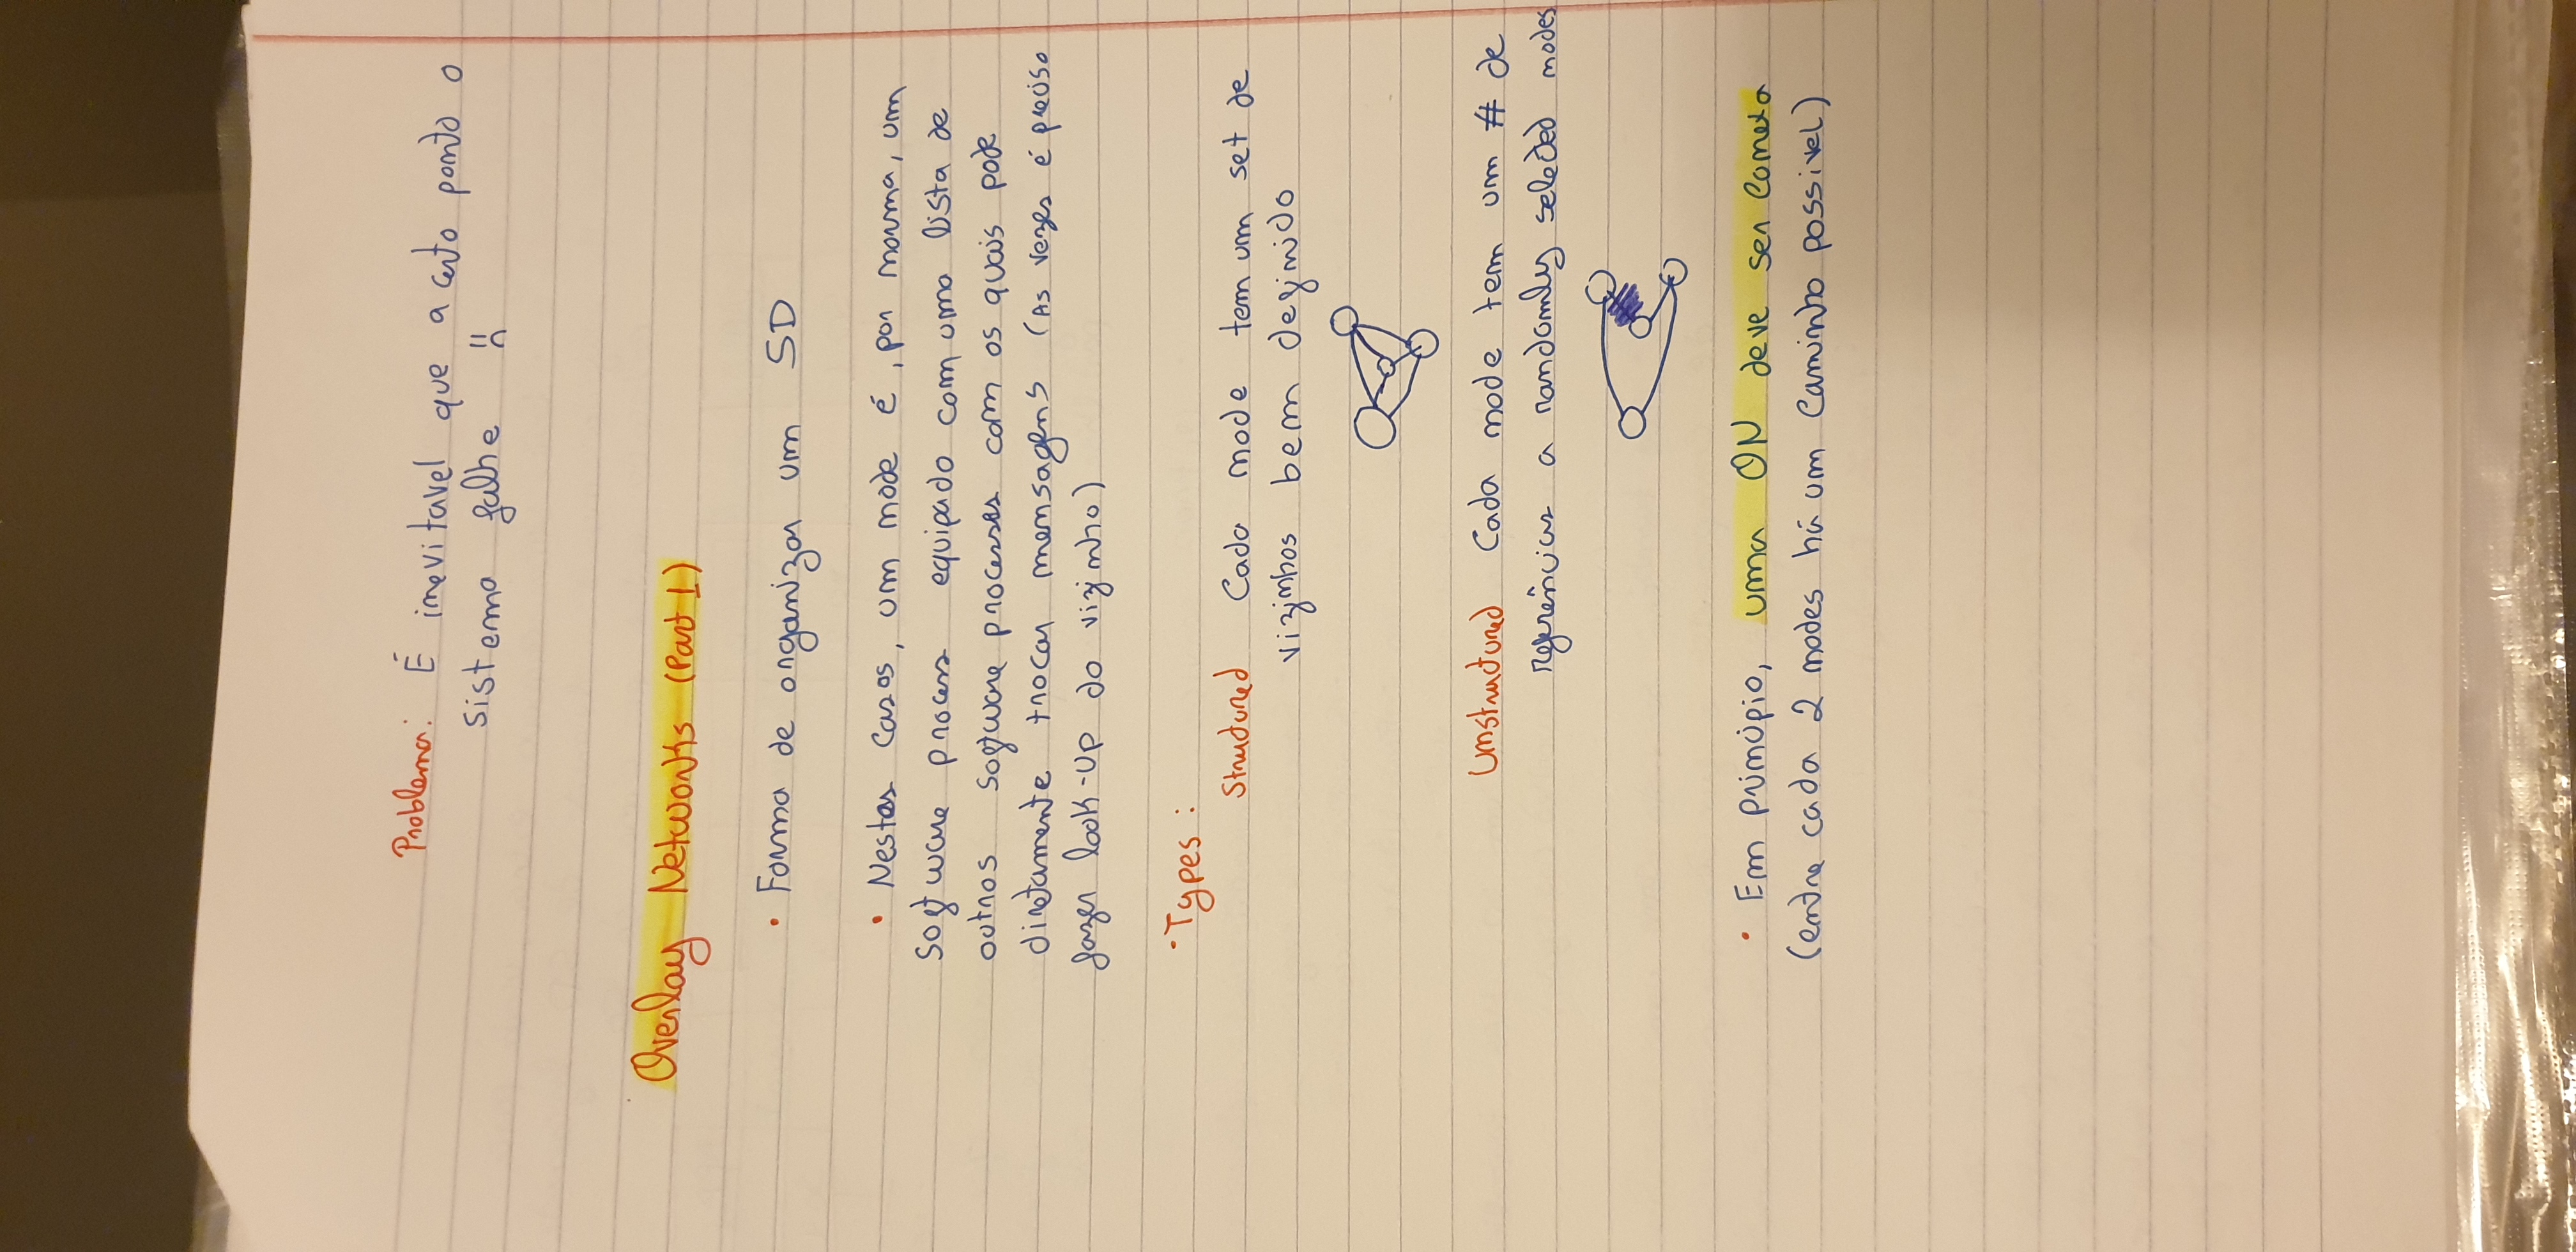 Problema: É inevitavel que a certo ponto o
sistema falhe
Overlay Networks (Part 1)
• Forma de organizar um SD
• Nestes casos, um node é, por norma, um
software process equipado com uma lista de
outros software processes com os quais pode
diretamente trocar mensagens (As vezes é preciso
fazer look-up do vizinho)
• Types:
Structured Cada node tem um set de
vizinhos bem definido
Unstructured Cada node tem um # de
referências a randomly selected nodes
• Em principio, uma ON deve ser conexa
(entre cada 2 nodes há um caminho possivel)